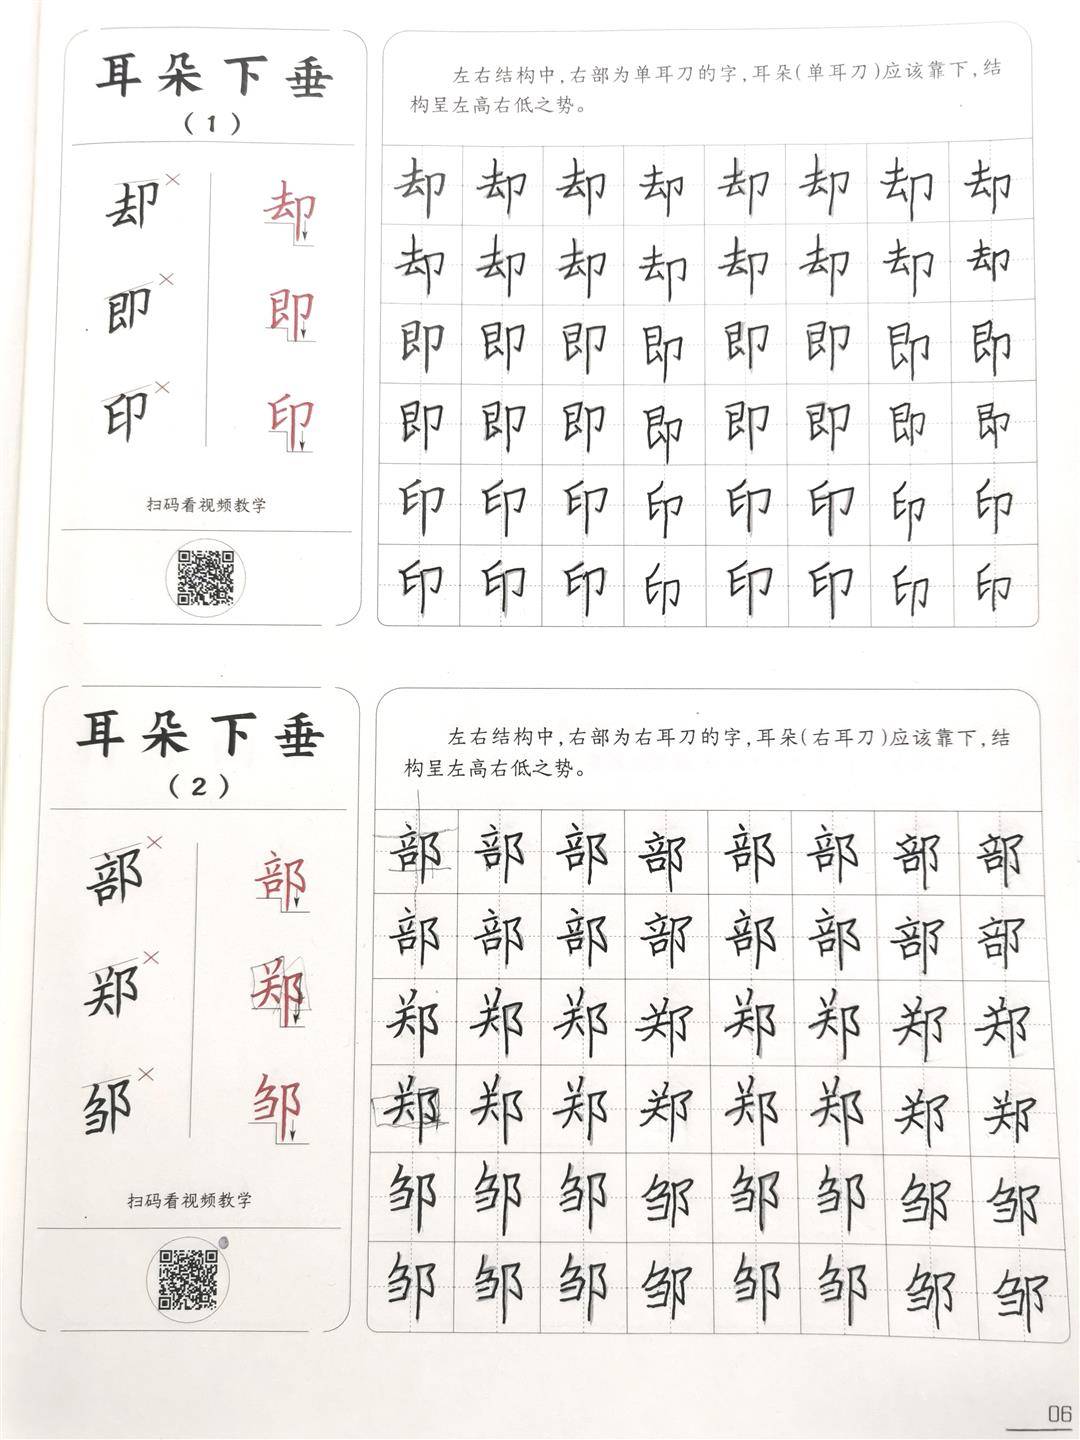 耳朵下垂
（1）
却 却
即 即
印 印
扫码看视频教学
左右结构中，右部为单耳刀的字，耳朵（单耳刀）应该靠下，结
构呈左高右低之势。
却 却 却 却 却 却 却 却
却 却 却 却 却 却 却 却
即 即 即 即 即 即 即 即
即 即 即 即 即 即 即 即
印 印 印 印 印 印 印 印
印 印 印 印 印 印 印 印
耳朵下垂
（2）
部 部
郑 郑
邹 邹
扫码看视频教学
左右结构中，右部为右耳刀的字，耳朵（右耳刀）应该靠下，结
构呈左高右低之势。
部 部 部 部 部 部 部 部
部 部 部 部 部 部 部 部
郑 郑 郑 郑 郑 郑 郑 郑
郑 郑 郑 郑 郑 郑 郑 郑
邹 邹 邹 邹 邹 邹 邹 邹
邹 邹 邹 邹 邹 邹 邹 邹
06